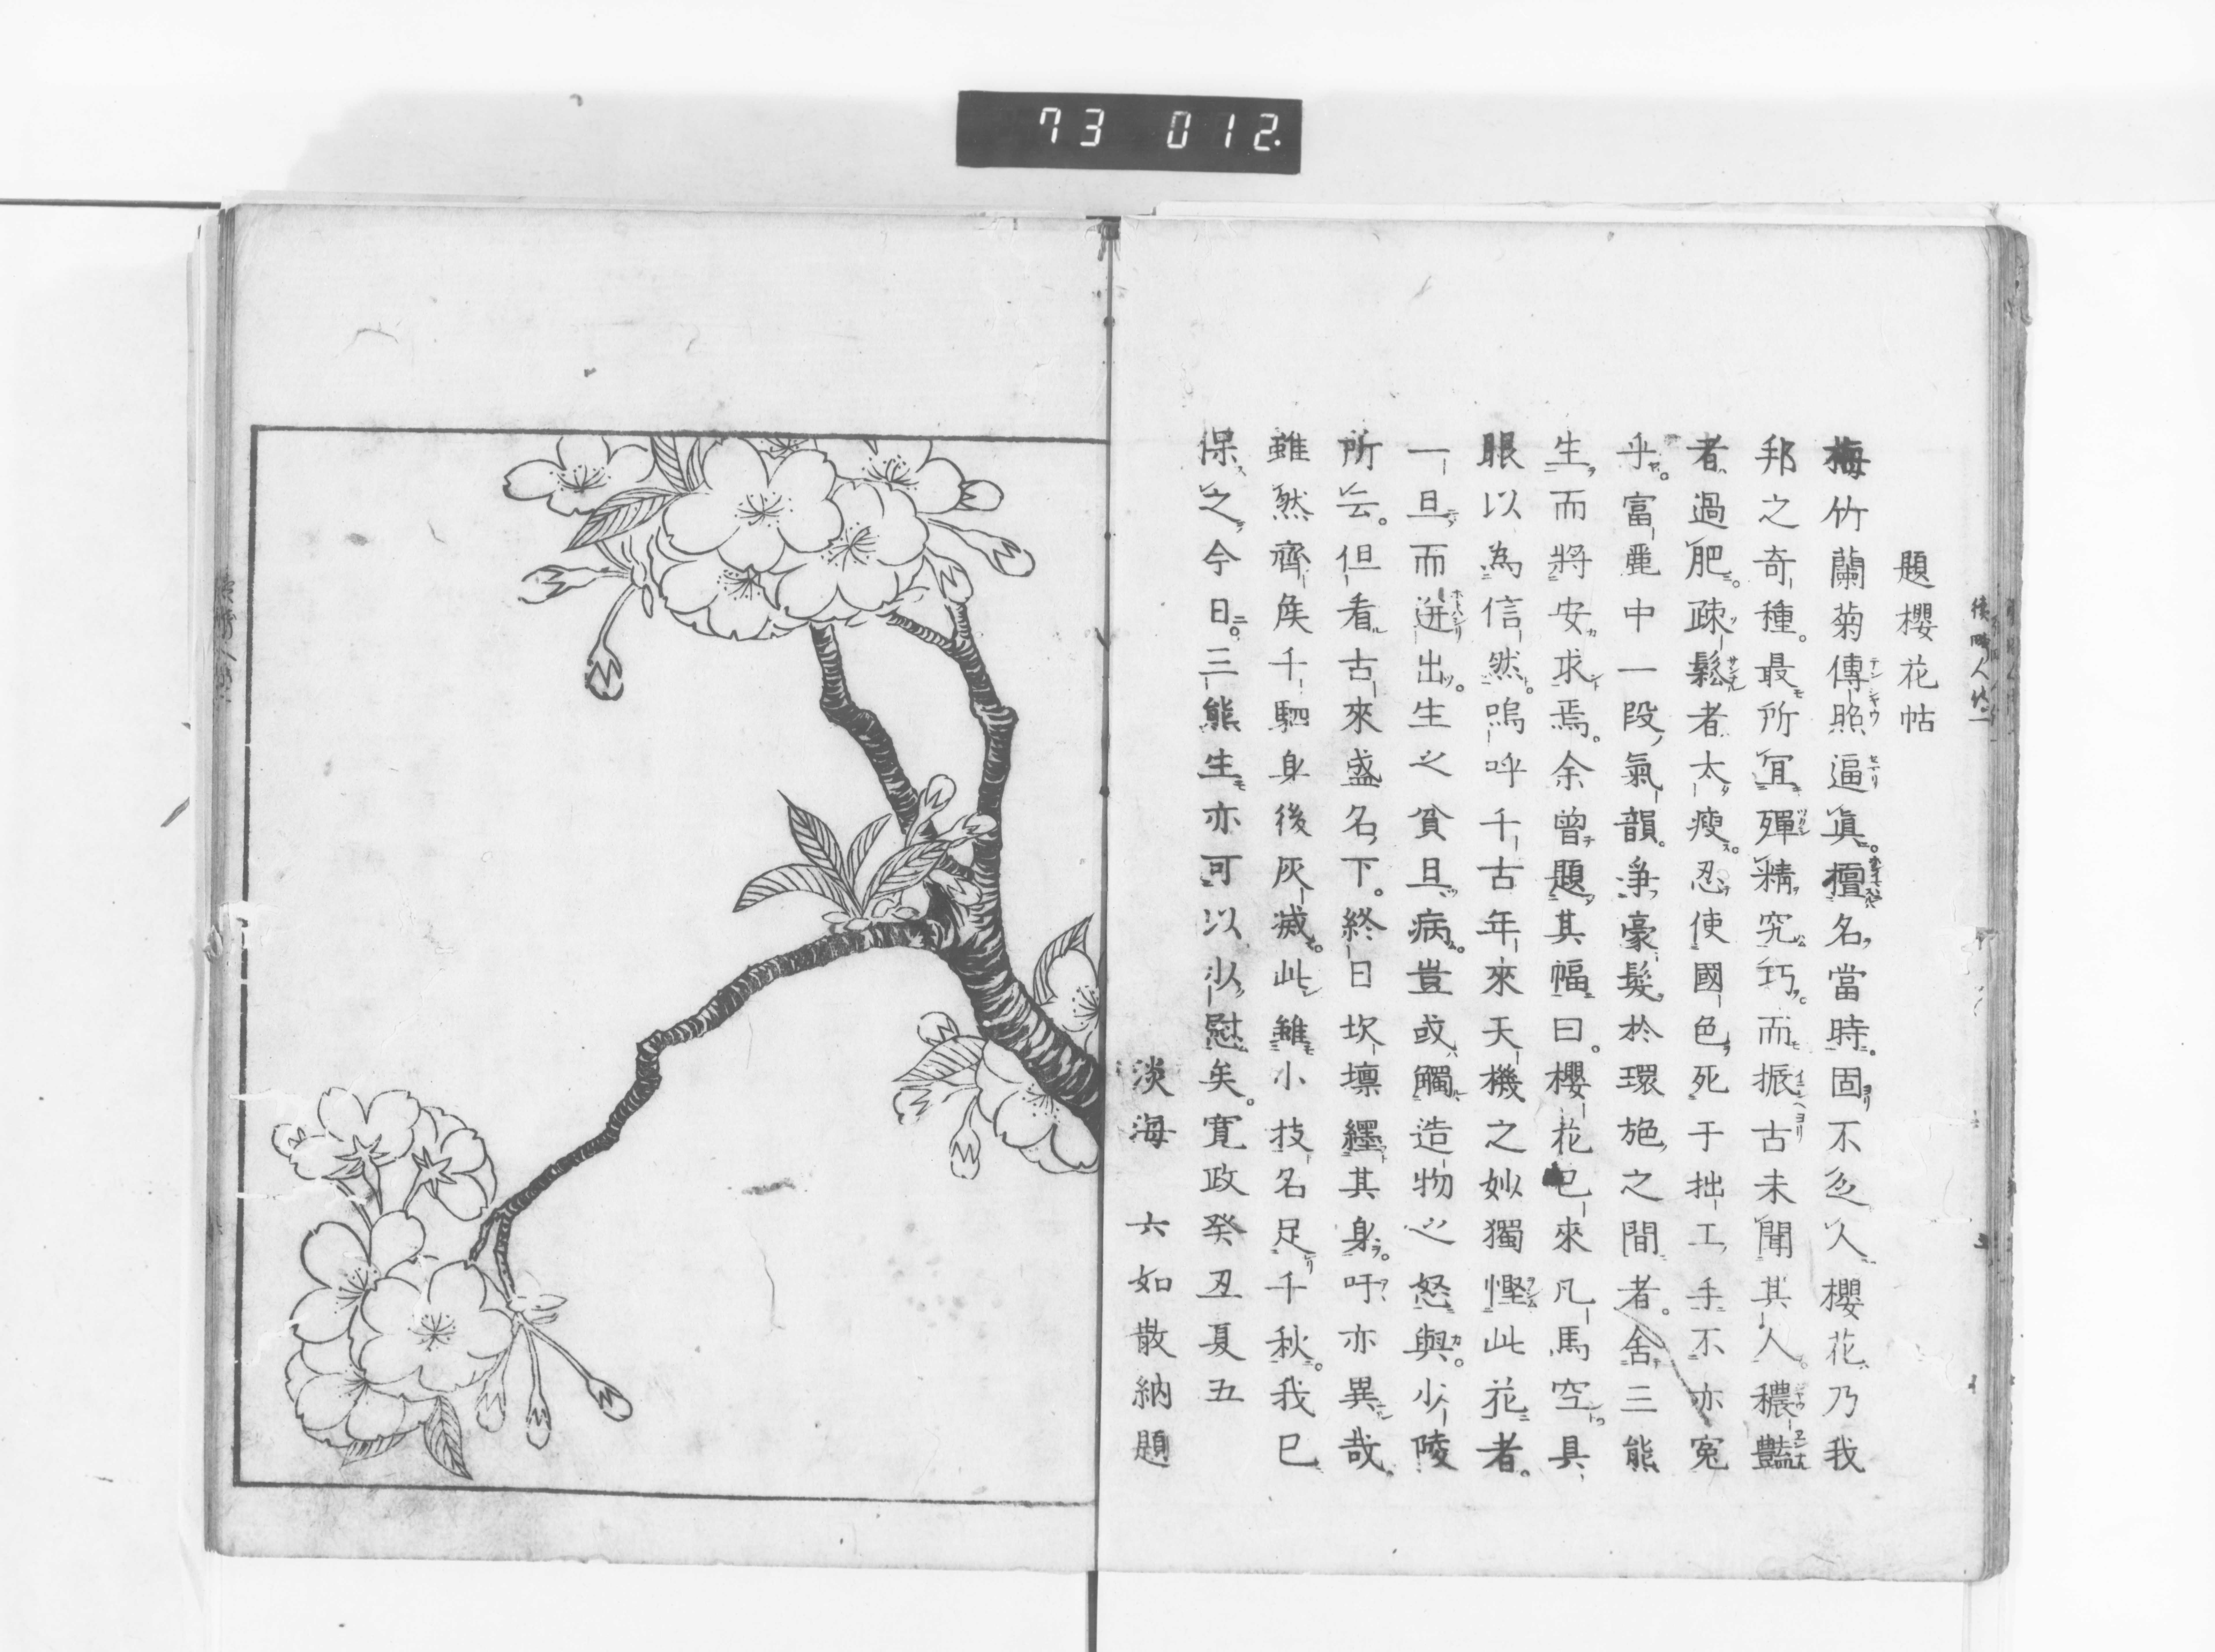 73 012.
題櫻花帖
梅竹蘭菊傳照逼眞。擅名當時。固不乏人。櫻花乃我
邦之奇種。最所宜殫精究巧。而振古未聞其人。穠豔
者過肥。疎鬆者太瘦。忍使國色死于拙工手。不亦寃
乎。富麗中一段氣韻。爭豪髮於環施之間者。舍三熊
生而將安求焉。余曾題其幅曰。櫻花已來凡馬空。具
眼以為信然。嗚呼千古年來天機之妙獨慳此花者。
一旦而迸出。生之貧且病。豈或觸造物之怒與。少陵
所云。但看古來盛名下。終日坎壈纒其身。吁亦異哉。
雖然齊矦千駟身後灰滅。此雖小技名足千秋。我已
保之今日。三熊生亦可以少慰矣。寛政癸丑夏五
淡海 六如散納題